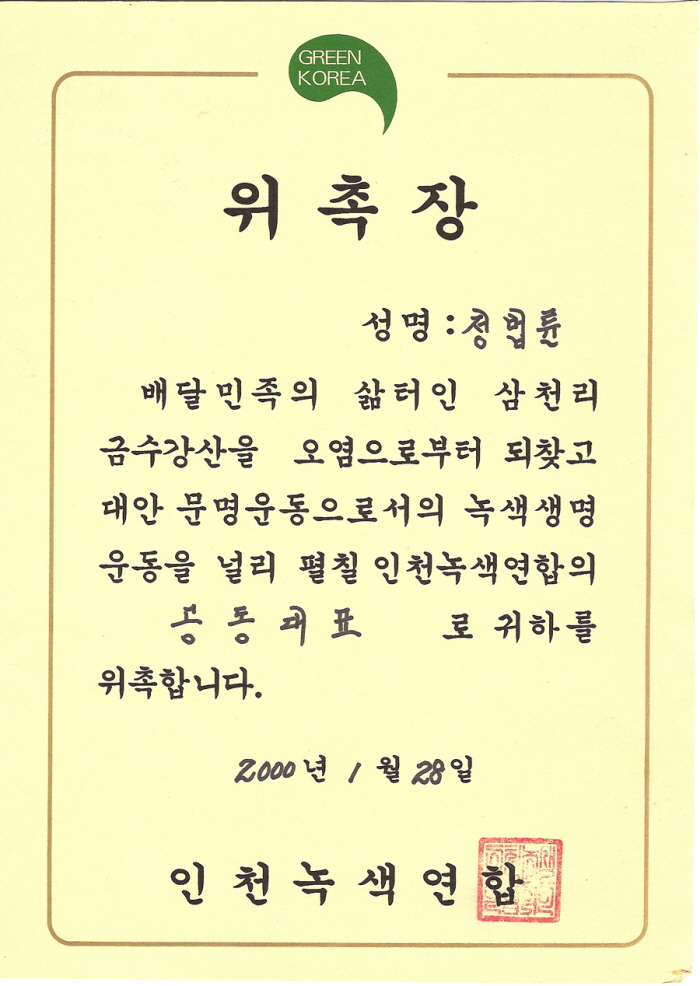 GREEN
KOREA
위촉장
성명 : 정법륜
배달민족의 삶터인 삼천리
금수강산을 오염으로부터 되찾고
대안 문명운동으로서의 녹색생명
운동을 널리 펼칠 인천녹색연합의
공동대표 로 귀하를
위촉합니다.
2000년 1월 28일
인천녹색연합